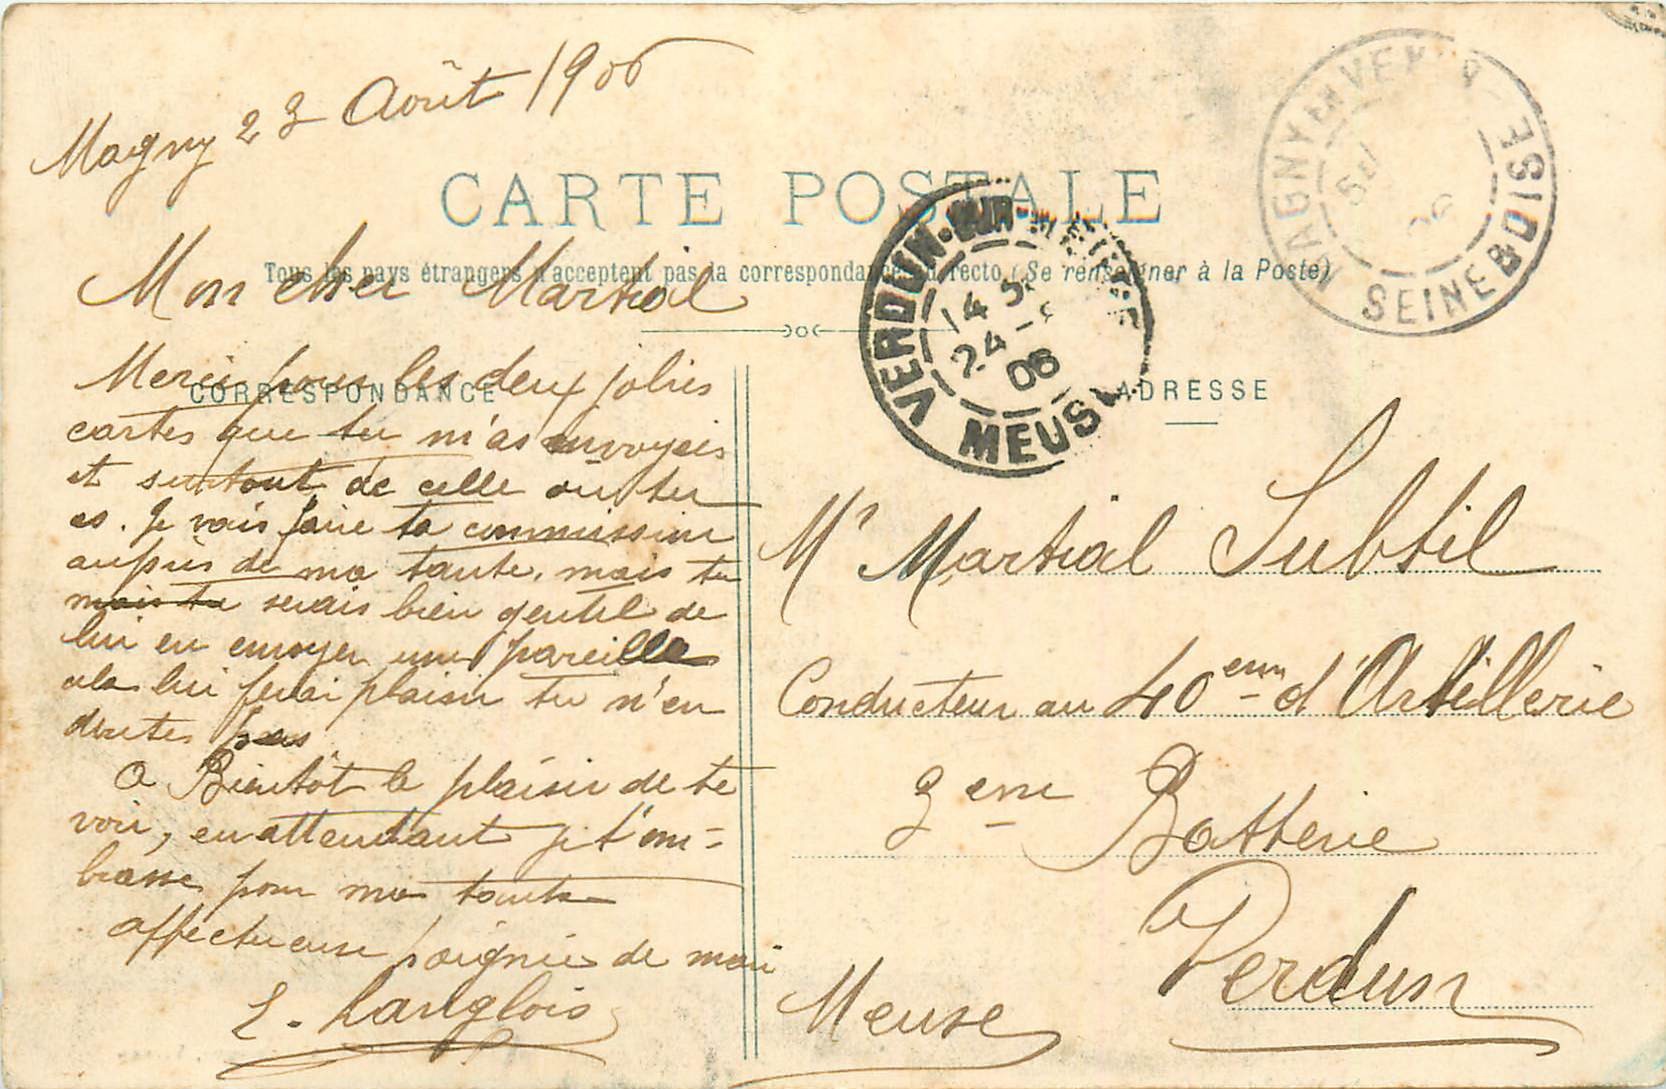 Magny 23 Août 1906
CARTE POSTALE
Tous les pays étrangers n'acceptent pas la correspondance au recto (Se renseigner à la Poste)
MAGNY EN VEXIN
SEINE & OISE
VERDUN-SUR-MEUSE
14
24 -8
06
MEUSE
Mon cher Martial
CORRESPONDANCE
Merci pour les deux jolies
cartes que tu m'as envoyeis
et surtout de celle ou tu
es. Je vais faire ta commission
auprès de ma tante, mais tu
mais tu serais bien gentil de
lui en envoyer une pareille
cela lui ferai plaisir tu n'en
doutes pas
A Bientôt le plaisir de te
voir, en attendant je t'em-
brasse pour ma tante
affectueuse poignée de main
L. Langlois
ADRESSE
Mr Martial Subtil
Conducteur au 40eme d'Artillerie
3eme Batterie
Verdun
Meuse